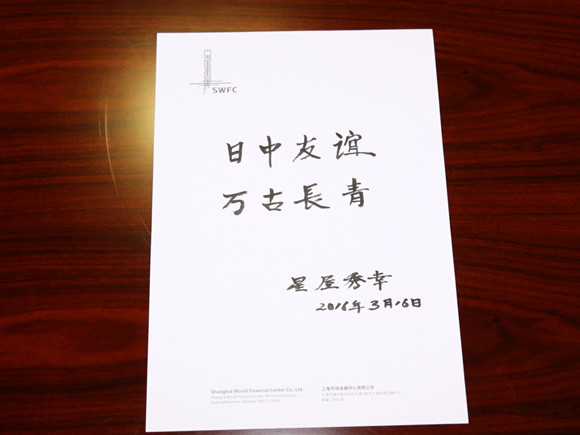 SWFC
日中友谊
万古長青
星屋秀幸
2016年3月16日
Shanghai World Financial Center Co., Ltd.
上海环球金融中心有限公司